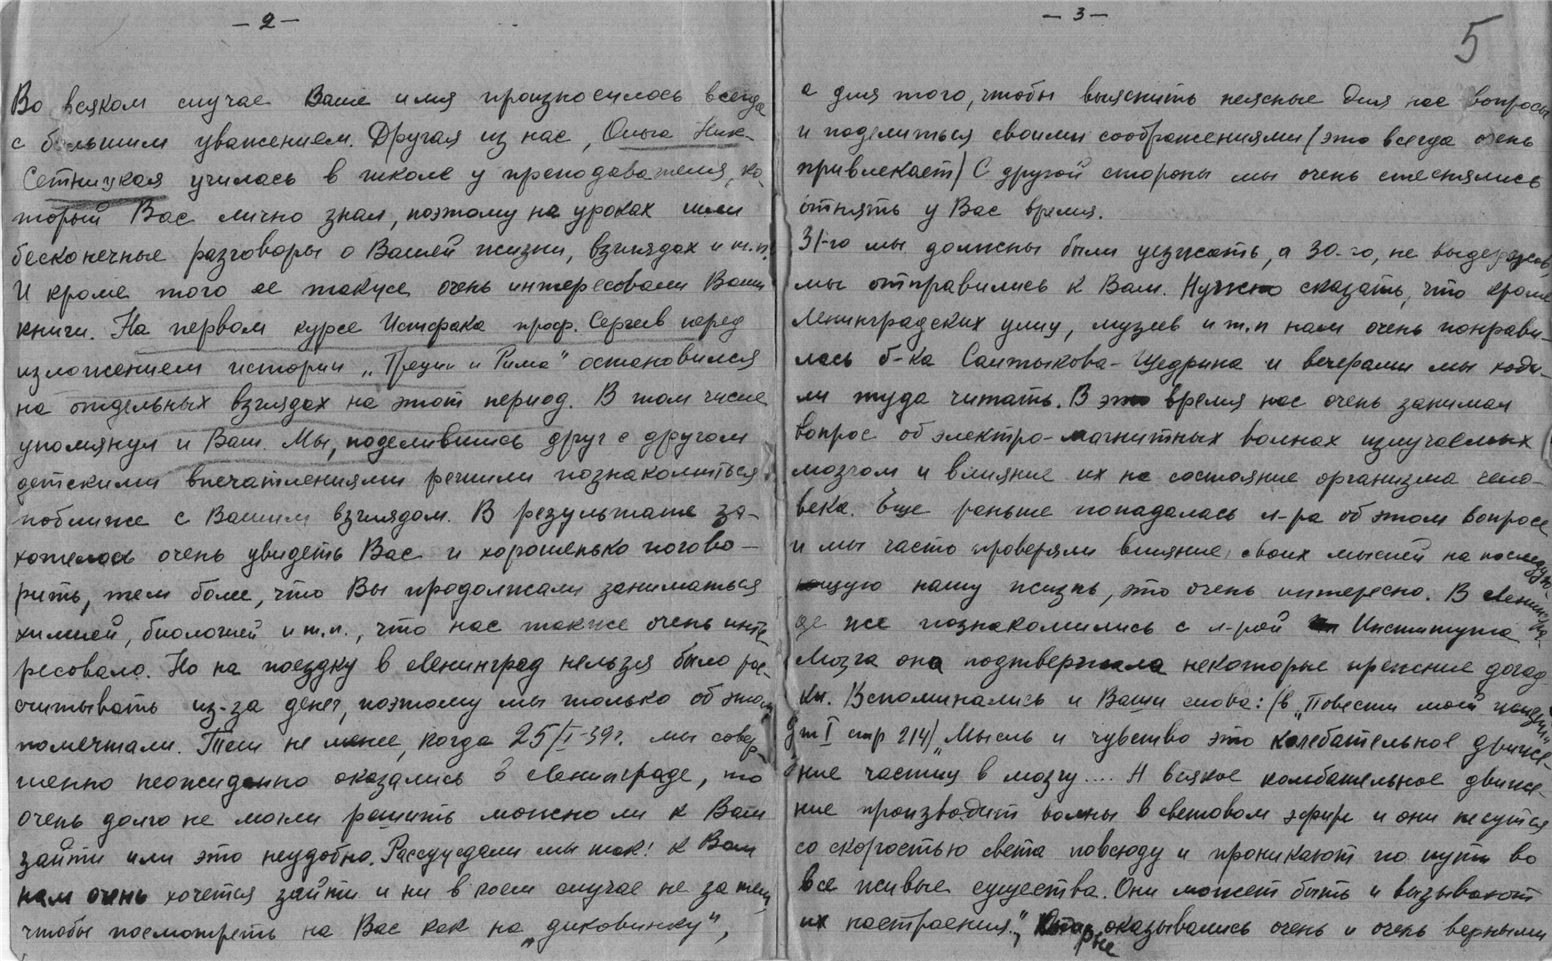 – 2 –
Во всяком случае Ваше имя произносилось всегда
с большим уважением. Другая из нас, Ольга Ник-
Сетницкая училась в школе у преподавателя, ко-
торый Вас лично знал, поэтому на уроках шли
бесконечные разговоры о Вашей жизни, взглядах и т.п.
И кроме того ее также очень интересовали Ваши
книги. На первом курсе Истфака проф. Сергеев перед
изложением истории „Греции и Рима" остановился
на отдельных взглядах на этот период. В том числе
упомянул и Ваш. Мы, поделившись друг с другом
детскими впечатлениями решили познакомиться
поближе с Вашим взглядом. В результате за-
хотелось очень увидеть Вас и хорошенько погово-
рить, тем более, что Вы продолжали заниматься
химией, биологией и т.п., что нас также очень инте
ресовало. Но на поездку в Ленинград нельзя было рас-
считывать из-за денег, поэтому мы только об этом
помечтали. Тем не менее, когда 25/I-39г. мы совер-
шенно неожиданно оказались в Ленинграде, то
очень долго не могли решить можно ли к Вам
зайти или это неудобно. Рассуждали мы так: к Вам
нам очень хочется зайти и ни в коем случае не за тем,
чтобы посмотреть на Вас как на „диковинку",
– 3 –
5
а для того, чтобы выяснить неясные для нас вопросы
и поделиться своими соображениями (это всегда очень
привлекает) С другой стороны мы очень стеснялись
отнять у Вас время.
31-го мы должны были уезжать, а 30-го, не выдержав,
мы отправились к Вам. Нужно сказать, что кроме
Ленинградских улиц, музеев и т.п нам очень понрави-
лась б-ка Салтыкова-Щедрина и вечерами мы ходи-
ли туда читать. В это время нас очень занимал
вопрос об электро-магнитных волнах излучаемых
мозгом и влияние их на состояние организма чело-
века. Еще раньше попадалась л-ра об этом вопросе
и мы часто проверяли влияние своих мыслей на последу-
ющую нашу жизнь, это очень интересно. В Ленингра-
де же познакомились с л-рой Института
Мозга она подтвержала некоторые прежние догад-
ки. Вспоминались и Ваши слова: (в „Повести моей жизни"
т I стр 214) „Мысль и чувство это колебательное движе-
ние частиц в мозгу.... А всякое колебательное движе-
ние производит волны в световом эфире и они несутся
со скоростью света повсюду и проникают по пути во
все живые существа. Они может быть и вызывают
их настроения", которые оказывались очень и очень верными